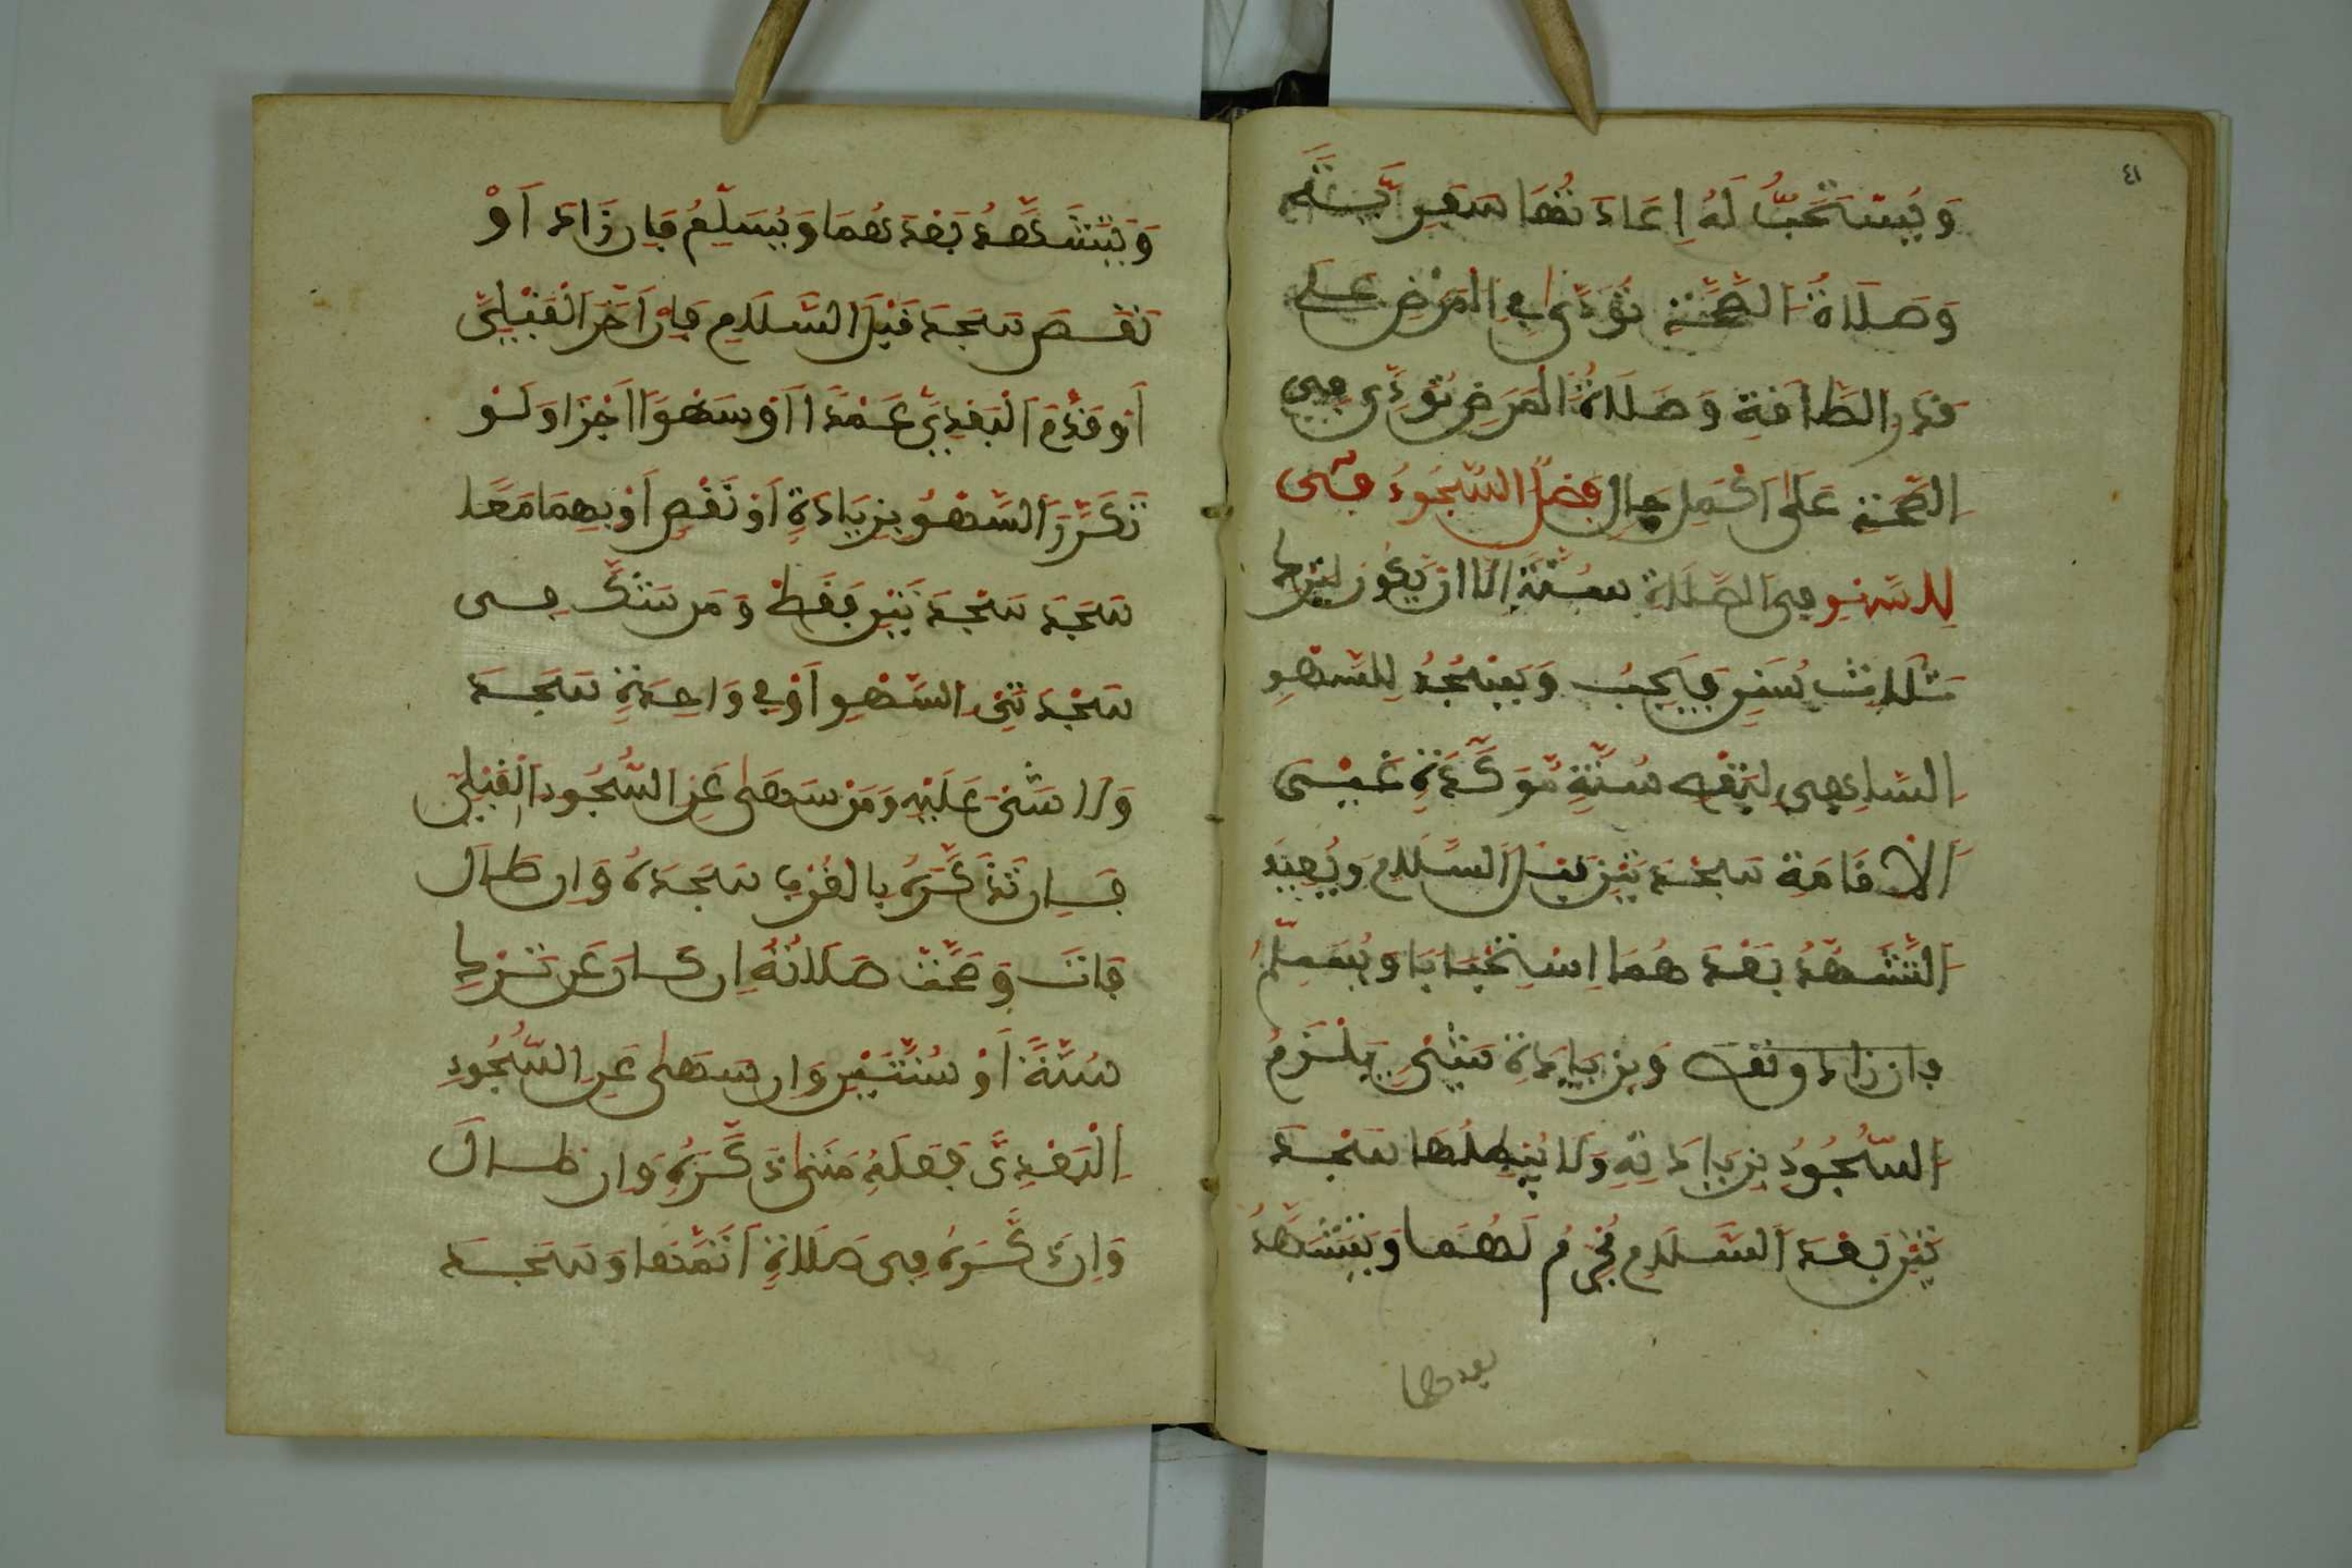 ٤١
وَيُسْتَحَبُّ لَهُ إِعَادَتُهَا سَفَرِيَّةً
وَصَلَاةُ الصِّحَّةِ تُؤَدَّى فِي الْمَرَضِ عَلَى
قَدْرِ الطَّاقَةِ وَصَلَاةُ الْمَرَضِ تُؤَدَّى فِي
الصِّحَّةِ عَلَى أَكْمَلِ حَالٍ فَصْلُ السُّجُودُ فِي
لِلسَّهْوِ فِي الصَّلَاةِ سُنَّةٌ إِلَّا أَنْ يَكُونَ لِتَرْكِ
ثَلَاثِ سُنَنٍ فَيَجِبُ وَيَسْجُدُ لِلسَّهْوِ
السَّاهِي لِنَقْصِ سُنَّةٍ مُؤَكَّدَةٍ غَيْرِ
الْإِقَامَةِ سَجْدَتَيْنِ قَبْلَ السَّلَامِ وَيُعِيدُ
التَّشَهُّدَ بَعْدَهُمَا اسْتِحْبَابًا وَيُسَلِّمُ
فإن زاد ونقص وَبِزِيَادَةِ شَيْءٍ يَلْزَمُ
السُّجُودُ بِزِيَادَتِهِ وَلَا يُبْطِلُهَا سَجْدَ
تَيْنِ بَعْدَ السَّلَامِ يُحْرِمُ لَهُمَا وَيَتَشَهَّدُ
بعدهما
وَيَتَشَهَّدُ بَعْدَهُمَا وَيُسَلِّمُ فَإِن زَادَ أَوْ
نَقَصَ سَجَدَ قَبْلَ السَّلَامِ فَإِنْ أَخَّرَ الْقَبْلِيَّ
أَوْ قَدَّمَ الْبَعْدِيَّ عَمْدًا أَوْ سَهْوًا أَجْزَا وَلَوْ
تَكَرَّرَ السَّهْوُ بِزِيَادَةٍ أَوْ نَقْصٍ أَوْ بِهِمَا مَعًا
سَجَدَ سَجْدَتَيْنِ فَقَطْ وَمَن شَكَّ فِي
سَجْدَتَيِ السَّهْوِ أَوْ فِي وَاحِدَةٍ سَجَدَ
وَلَا شَيْءَ عَلَيْهِ وَمَنْ سَهَى عَنِ السُّجُودِ الْقَبْلِيِّ
فَإِن تَذَكَّرَهُ بِالْقُرْبِ سَجَدَهُ وَإِن طَالَ
فَاتَ وَصَحَّتْ صَلَاتُهُ إِن كَانَ عَن تَرْكِ
سُنَّةٍ أَوْ سُنَّتَيْنِ وَإِن سَهَى عَنِ السُّجُودِ
الْبَعْدِيِّ فَعَلَهُ مَتَى ذَكَرَهُ وَإِن طَالَ
وَإِن ذَكَرَهُ فِي صَلَاةٍ أَتَمَّهَا وَسَجَدَ